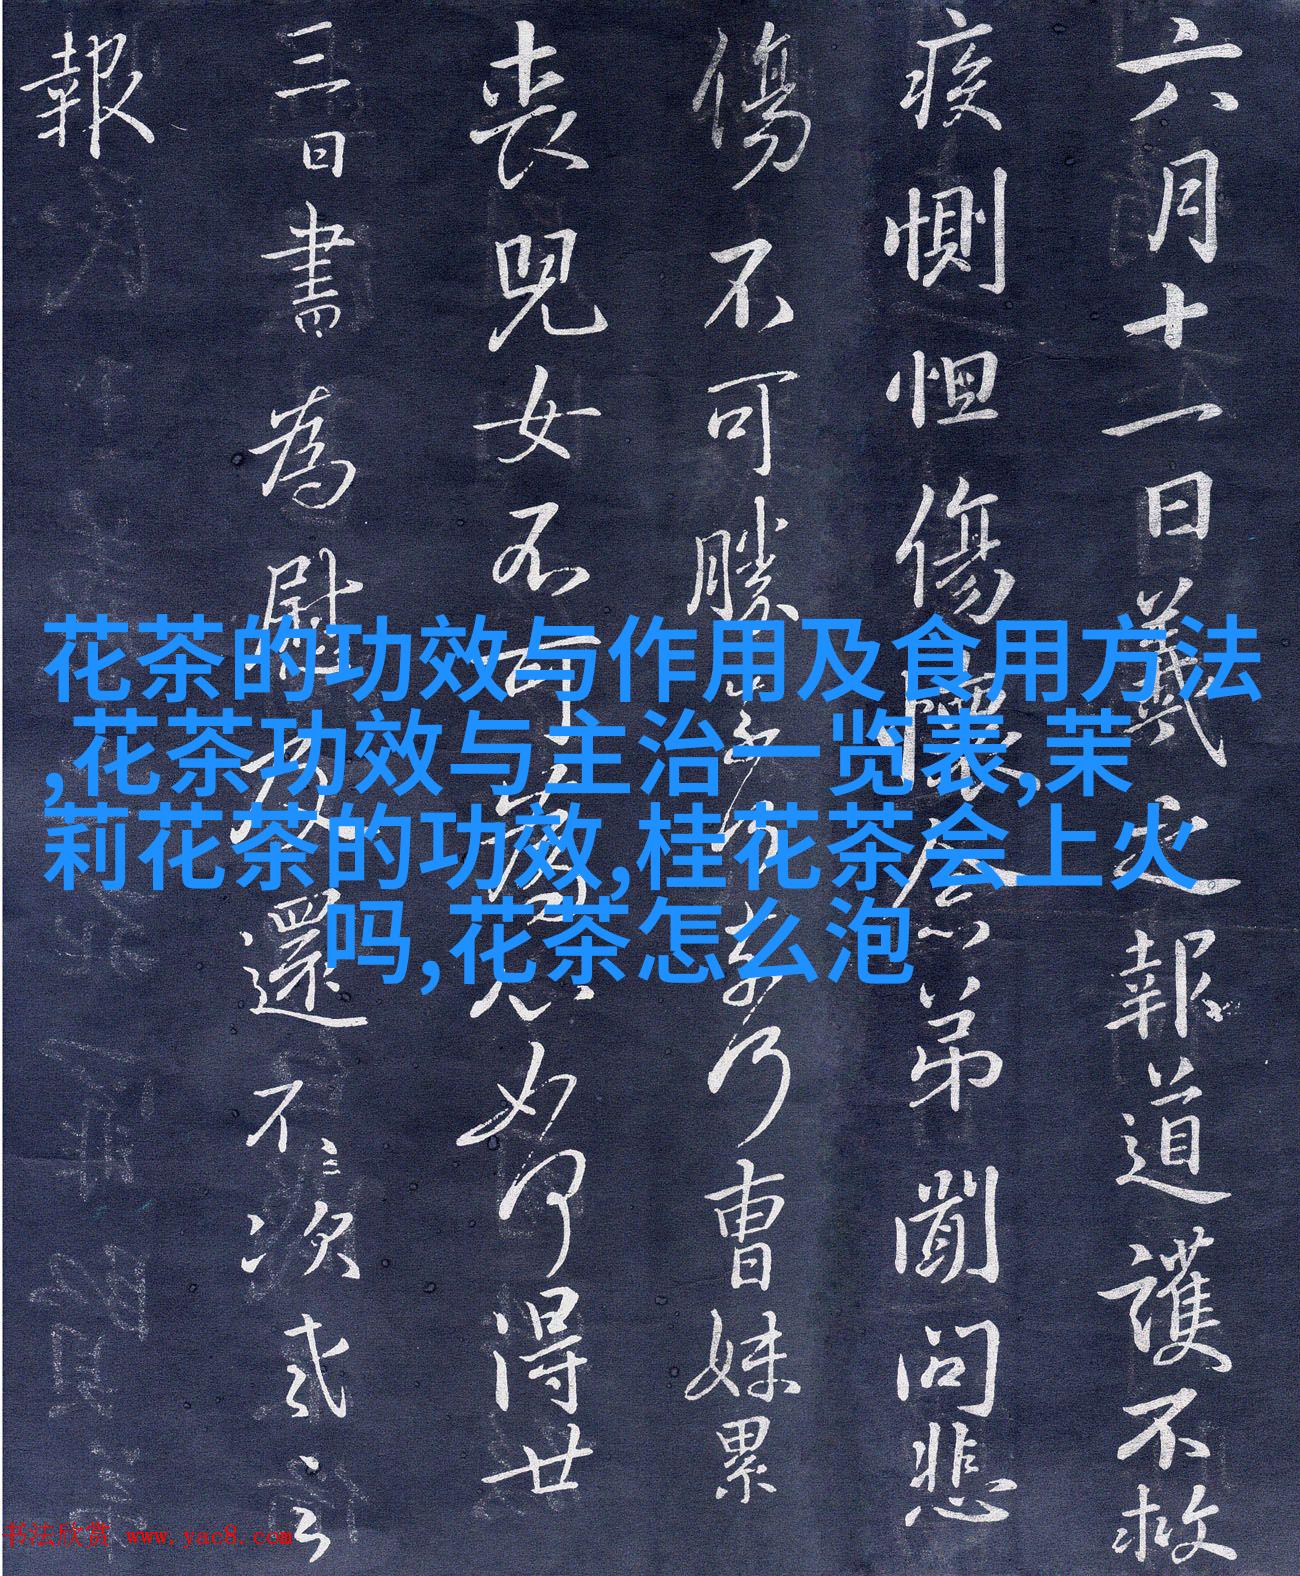 六月十一日羲之報道護不救
疾惻怛傷懷念弟聞問悲
傷不可勝曹妹累
喪兒女不可為心如何得廿
三日書為慰及還不次
報
花茶的功效与作用及食用方法
,花茶功效与主治一览表,茉
莉花茶的功效,桂花茶会上火
吗,花茶怎么泡
书法欣赏 www.yac8.com